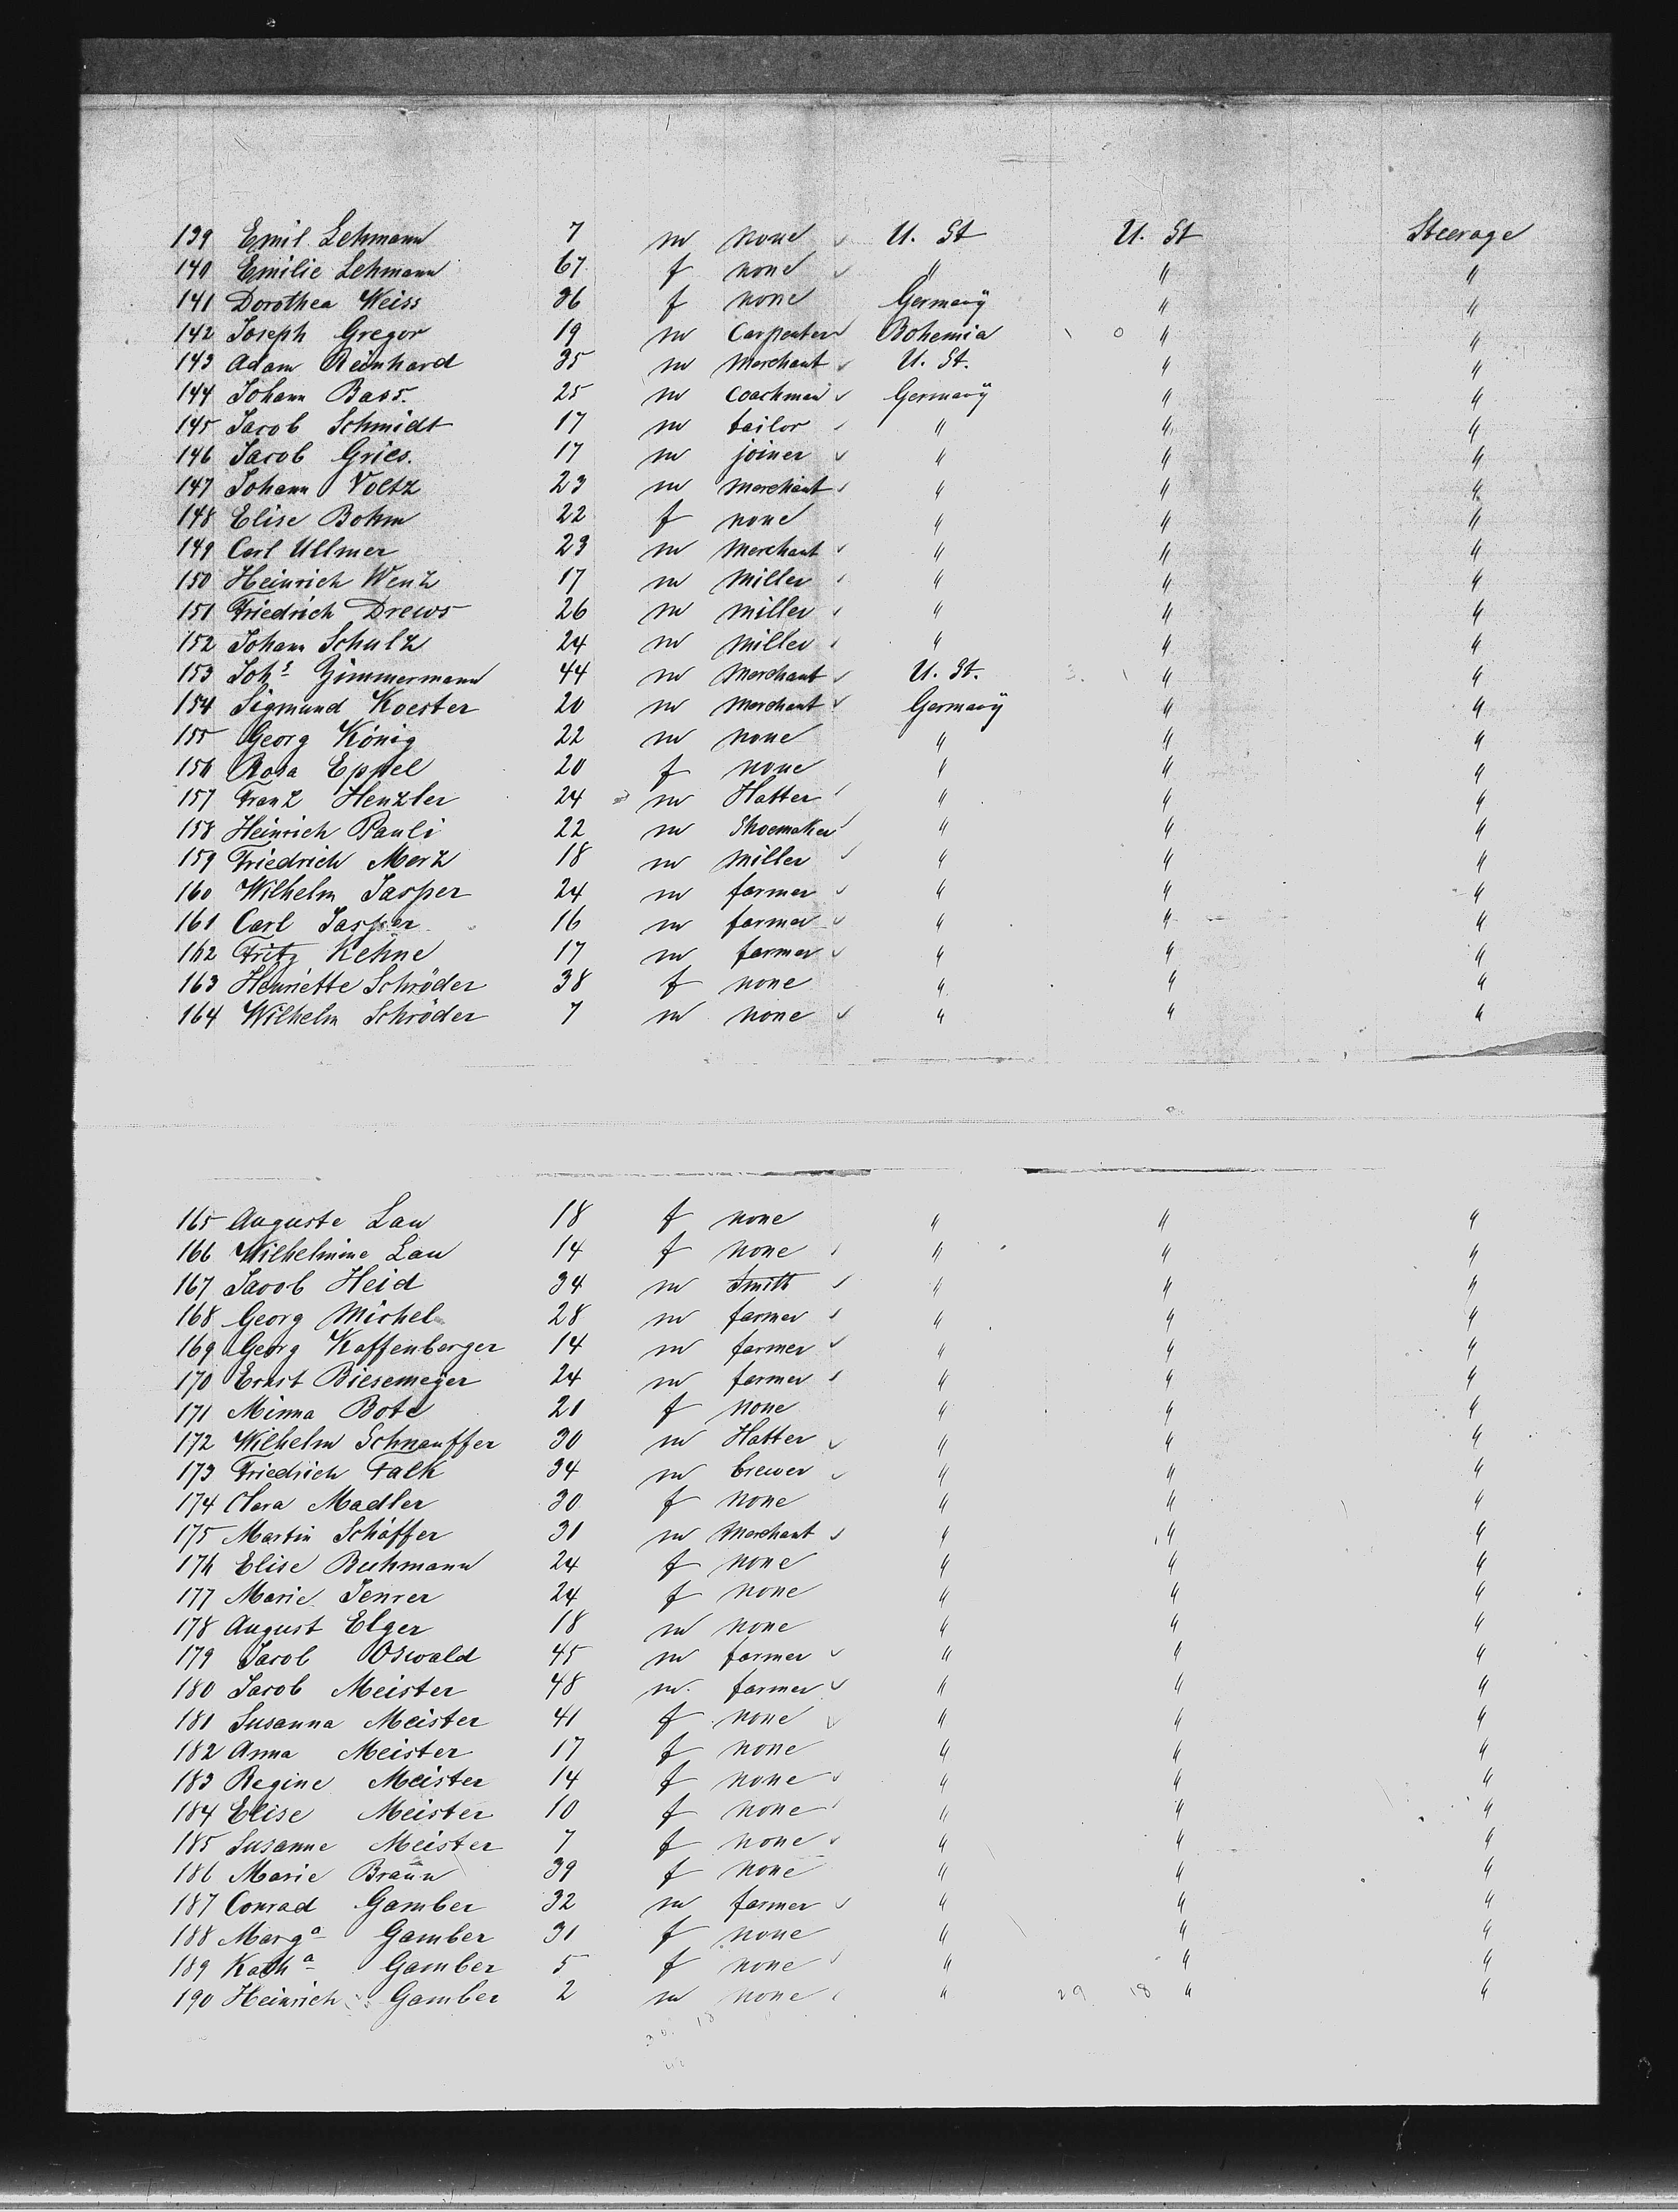 139 Emil Lehmann 7 m none U. St U. St Steerage
140 Emilie Lehmann 67 f none " " "
141 Dorothea Weiss 36 f none Germany " "
142 Joseph Gregor 19 m Carpenter Bohemia 1 0 " "
143 Adam Reinhard 35 m Merchant U. St. " "
144 Johann Bass. 25 m Coachman Germany " "
145 Jacob Schmidt 17 m tailor " " "
146 Jacob Gries. 17 m joiner " " "
147 Johann Voltz 23 m Merchant " " "
148 Elise Bohm 22 f none " " "
149 Carl Ullmer 23 m Merchant " " "
150 Heinrich Wenz 17 m Miller " " "
151 Friedrich Drews 26 m miller " " "
152 Johann Schulz 24 m miller " " "
153 Johs Zimmermann 44 m Merchant U. St. 3. 1 " "
154 Sigmund Koester 20 m Merchant Germany " "
155 Georg König 22 m none " " "
156 Rosa Eppel 20 f none " " "
157 Franz Henzler 24 m Hatter " " "
158 Heinrich Pauli 22 m Shoemaker " " "
159 Friedrich Merz 18 m miller " " "
160 Wilhelm Jasper 24 m farmer " " "
161 Carl Jasper 16 m farmer " " "
162 Fritz Kehne 17 m farmer " " "
163 Henriette Schröder 38 f none " " "
164 Wilhelm Schröder 7 m none " " "
165 Auguste Lau 18 f none " " "
166 Wilhelmine Lau 14 f none " " "
167 Jacob Heid 34 m Smith " " "
168 Georg Michel 28 m farmer " " "
169 Georg Kaffenberger 14 m farmer " " "
170 Ernst Biesemeÿer 24 m farmer " " "
171 Minna Bote 21 f none " " "
172 Wilhelm Schnauffer 30 m Hatter " " "
173 Friedrich Falk 34 m brewer " " "
174 Clara Madler 30 f none " " "
175 Martin Schäffer 31 m Merchant " " "
176 Elise Buhmann 24 f none " " "
177 Marie Jenrer 24 f none " " "
178 August Elger 18 m none " " "
179 Jacob Oswald 45 m farmer " " "
180 Jacob Meister 48 m. farmer " " "
181 Susanna Meister 41 f none " " "
182 Anna Meister 17 f none " " "
183 Regine Meister 14 f none " " "
184 Elise Meister 10 f none " " "
185 Susanne Meister 7 f none " " "
186 Marie Braun 39 f none " " "
187 Conrad Gamber 32 m farmer " " "
188 Marga Gamber 31 f none " " "
189 Katha Gamber 5 f none " " "
190 Heinrich Gamber 2 m none " 29 18 " "
30. 18